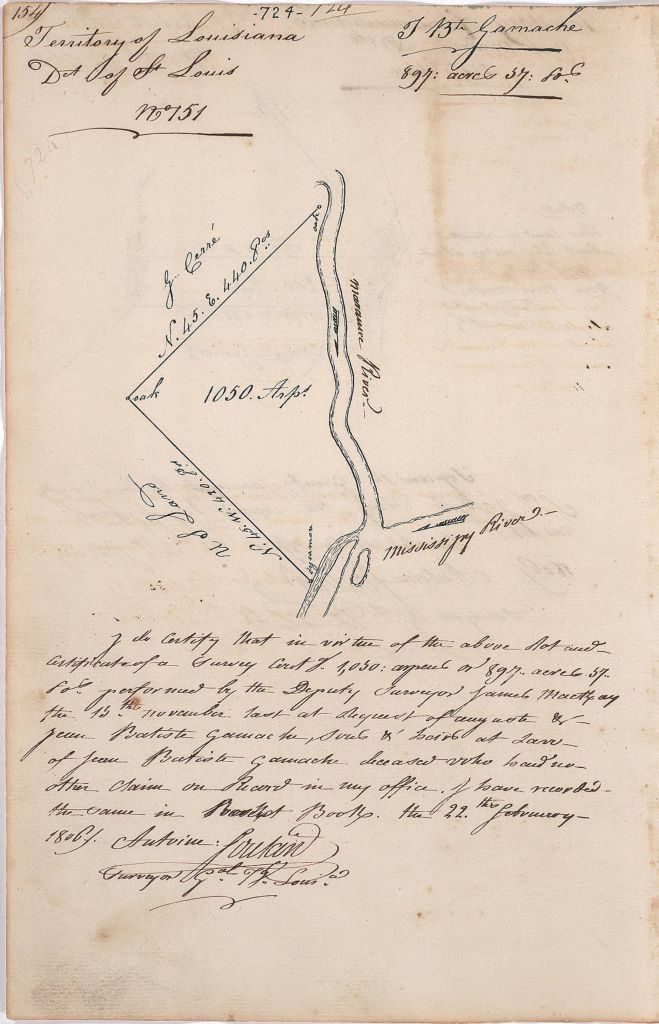 154
-724- 724
Territory of Louisiana
Dct of St Louis
No 151
J Bte Gamache
897: acres 57: 80s
(724)
oak
G. Cerré
N. 45. E. 440. Pos
Maramec River
oak
1050. Arps
U S Land
N. 45. W. 420. Ps
Sycamon
Mississipy River
I do certify that in virtue of the above Plot and
certificate of a Survey Cont.g 1,050: arpens or 897. acres 57.
80s performed by the Deputy Surveyor James Mackay
the 15th november last at Request of auguste &
jean Batiste Gamache, sons & heirs at Law
of Jean Batiste Gamache deceased who had no
other Claim on Record in my office. I have recorded
the same in Book. the 22.th february
1806/. Antoine Soulard
Surveyor Gal Ty Lousa